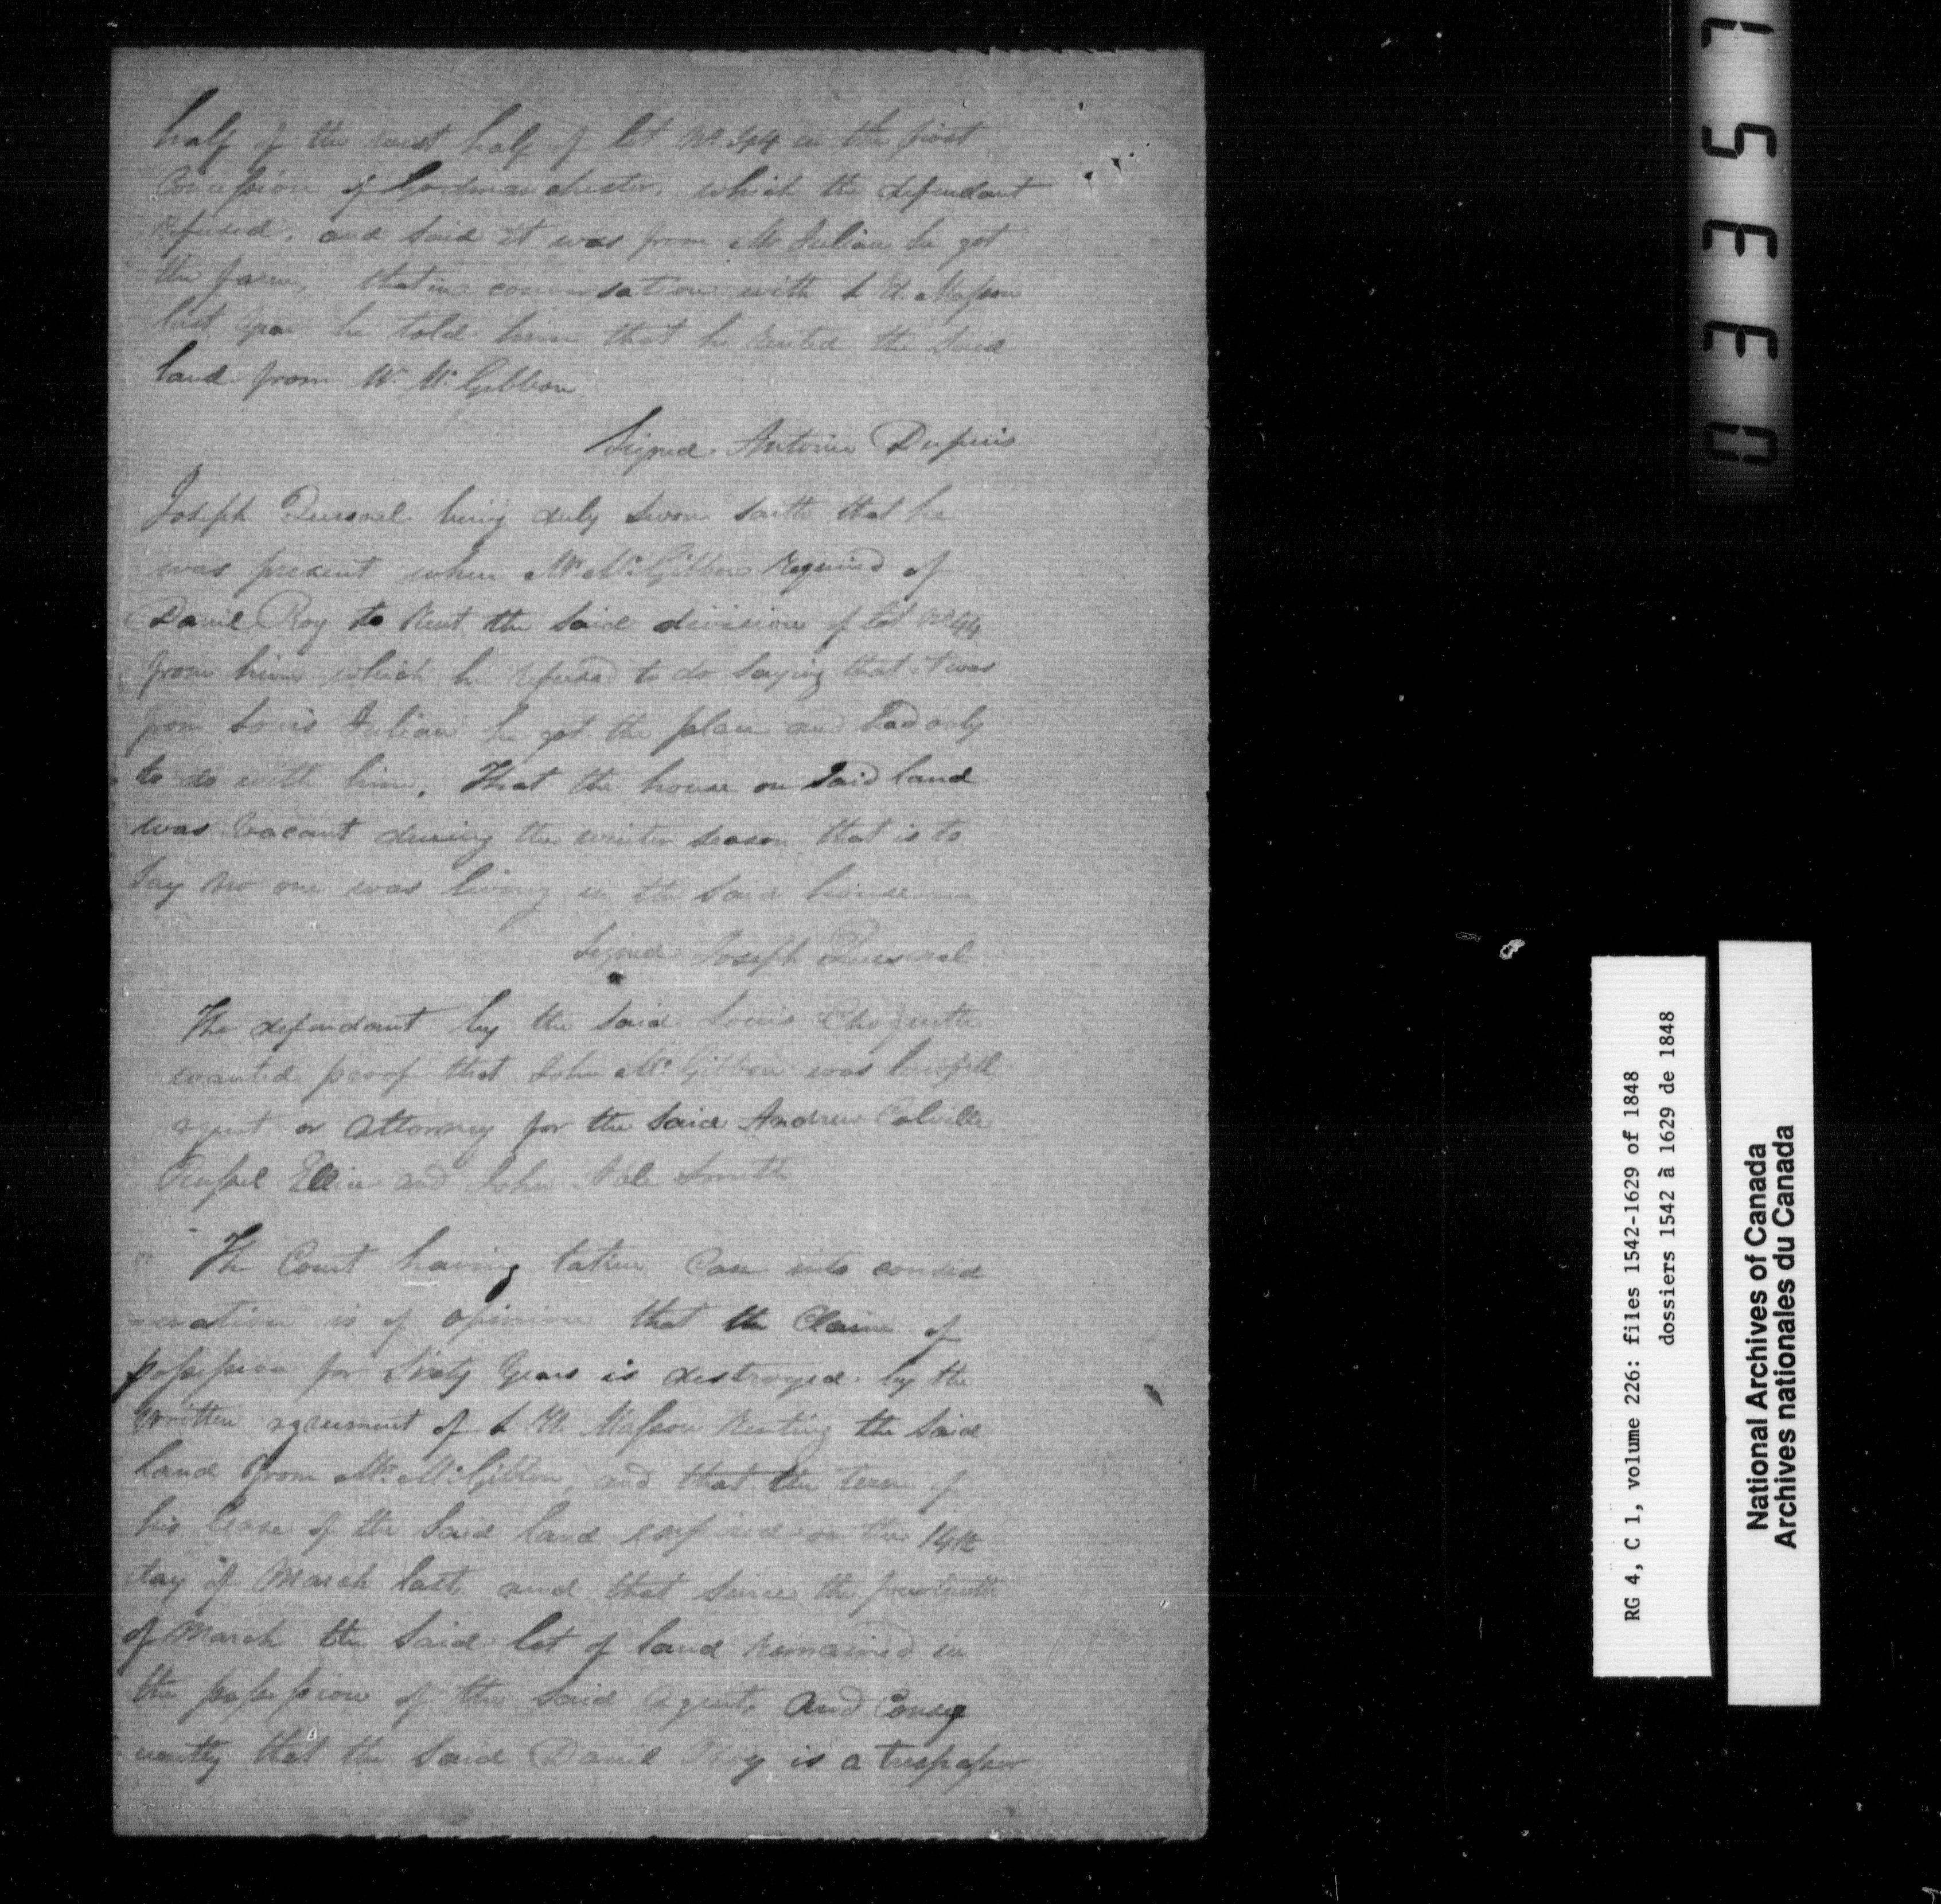 half of the west half of lot No 44 in the first
Concession of Godmanchester, which the defendant
refused, and said it was from Mr Julian he got
the farm, that in a conversation with L H. Masson
last year he told him that he rented the said
land from Mr McGibbon
Signed Antoine Dupuis
Joseph Quesnel being duly sworn saith that he
was present when Mr McGibbon required of
David Roy to rent the said division of lot No 44
from him which he refused to do saying that it was
from Louis Julian he got the place and had only
to do with him. That the house on said land
was vacant during the winter season that is to
say no one was living in the said house
Signed Joseph Quesnel
The defendant by the said Louis Choquette
wanted proof that John McGibbon was lawfull
agent or attorney for the said Andrew Colville
Russel Ellice and John Able Smith
The Court having taken Case into consid
-eration is of opinion that the Claim of
possession for Sixty Years is destroyed by the
written agreement of L H. Masson renting the said
land from Mr McGibbon, and that the term of
his lease of the said land expired on the 14th
day of March last and that since the fourteenth
of March the said lot of land remained in
the possession of the said agent, and Conseq
uently that the said David Roy is a trespasser
03357
RG 4, C 1, volume 226: files 1542-1629 of 1848
dossiers 1542 à 1629 de 1848
National Archives of Canada
Archives nationales du Canada